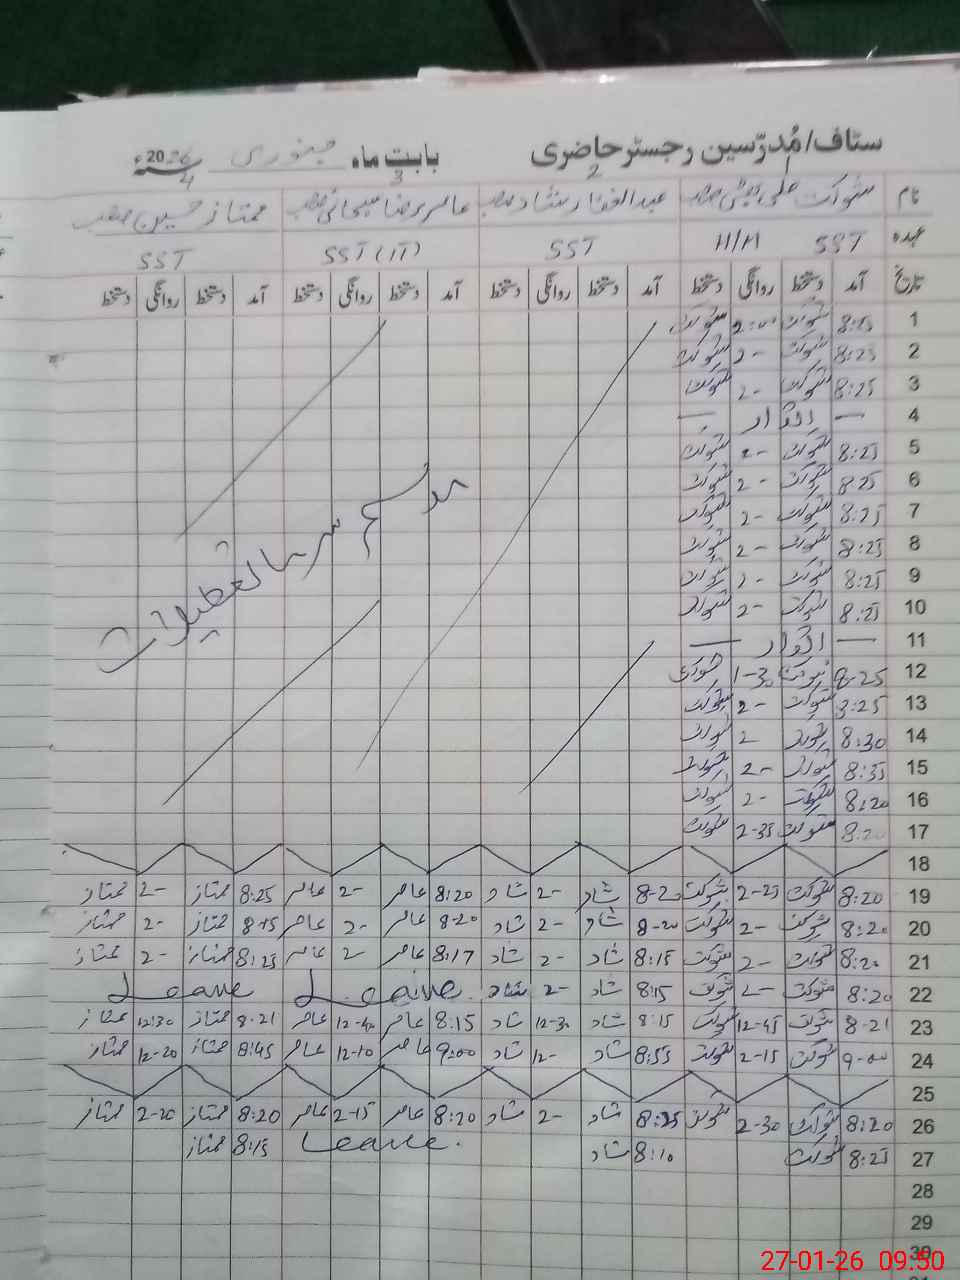 سٹاف/مُدرّسین رجسٹر حاضری بابت ماہ جنوری 2026ء
1 2 3 4
نام شوکت علی صاحب عبدالغفار شاد صاحب عامر رضا صاحب ممتاز حسین صاحب
عہدہ SST H/M SST SST (IT) SST
تاریخ آمد دستخط روانگی دستخط آمد دستخط روانگی دستخط آمد دستخط روانگی دستخط آمد دستخط روانگی دستخط
1 8:25 شوکت 2:00 شوکت
2 8:25 شوکت 2- شوکت
3 8:25 شوکت 2- شوکت
4 — اتوار —
5 8:25 شوکت 2- شوکت
6 8:25 شوکت 2- شوکت
7 8:25 شوکت 2- شوکت
8 8:25 شوکت 2- شوکت
9 8:25 شوکت 2- شوکت
10 8:25 شوکت 2- شوکت
موسم سرما تعطیلات
11 — اتوار —
12 8-25 شوکت 1-30 شوکت
13 8:25 شوکت 2- شوکت
14 8:30 شوکت 2 شوکت
15 8:35 شوکت 2- شوکت
16 8:20 شوکت 2- شوکت
17 8:20 شوکت 2-35 شوکت
18
19 8:20 شوکت 2-25 شوکت 8-20 شاد 2- شاد 8:20 عامر 2- عامر 8:25 ممتاز 2- ممتاز
20 8:20 شوکت 2- شوکت 8-20 شاد 2- شاد 8-20 عامر 2- عامر 8-15 ممتاز 2- ممتاز
21 8:20 شوکت 2- شوکت 8:15 شاد 2- شاد 8:17 عامر 2- عامر 8:25 ممتاز 2- ممتاز
22 8:20 شوکت 2- شوکت 8:15 شاد 2- شاد Leave Leave
23 8-21 شوکت 12-45 شوکت 8:15 شاد 12-30 شاد 8:15 عامر 12-40 عامر 8-21 ممتاز 12:30 ممتاز
24 9-00 شوکت 2-15 شوکت 8:55 شاد 12- شاد 9:00 عامر 12-10 عامر 8:45 ممتاز 12-20 ممتاز
25
26 8:20 شوکت 2-30 شوکت 8:25 شاد 2- شاد 8:20 عامر 2-15 عامر 8:20 ممتاز 2-20 ممتاز
27 8:25 شوکت 8:10 شاد Leave. 8:15 ممتاز
28
29
30
27-01-26 09:50